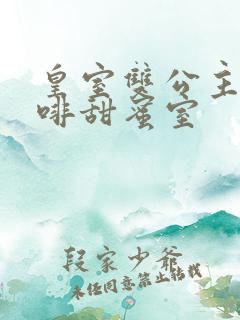 皇室雙公主
啡甜蜜室
段家少爺
未经同意禁止转载